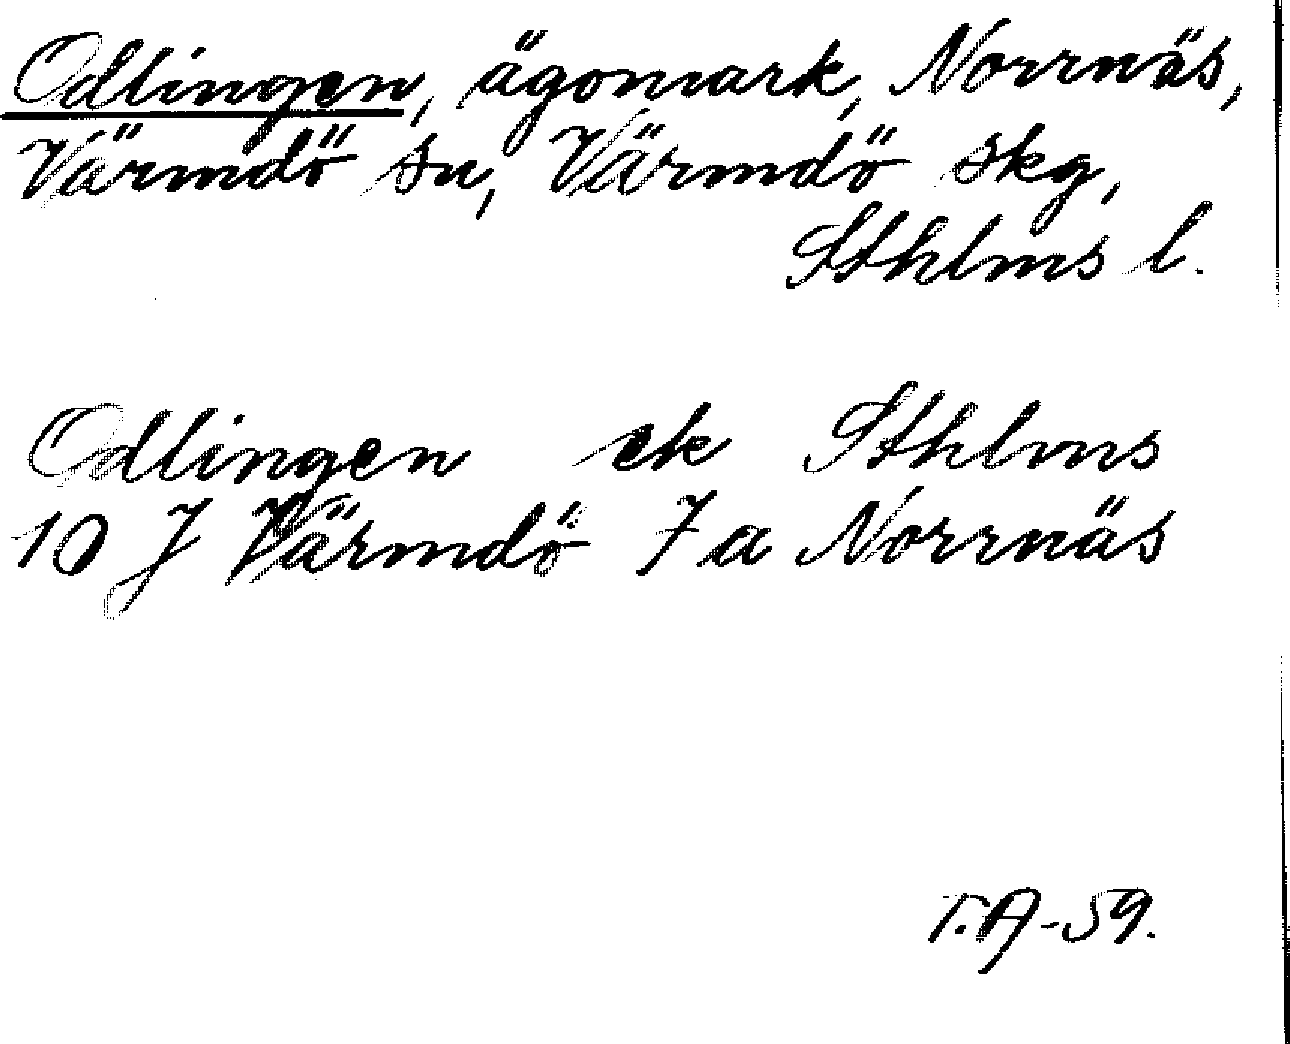 Odlingen, ägomark, Norrnäs,
Värmdö sn, Värmdö skg,
Sthlms l.
Odlingen ek Sthlms
10 J Värmdö 7a Norrnäs
T.A-59.